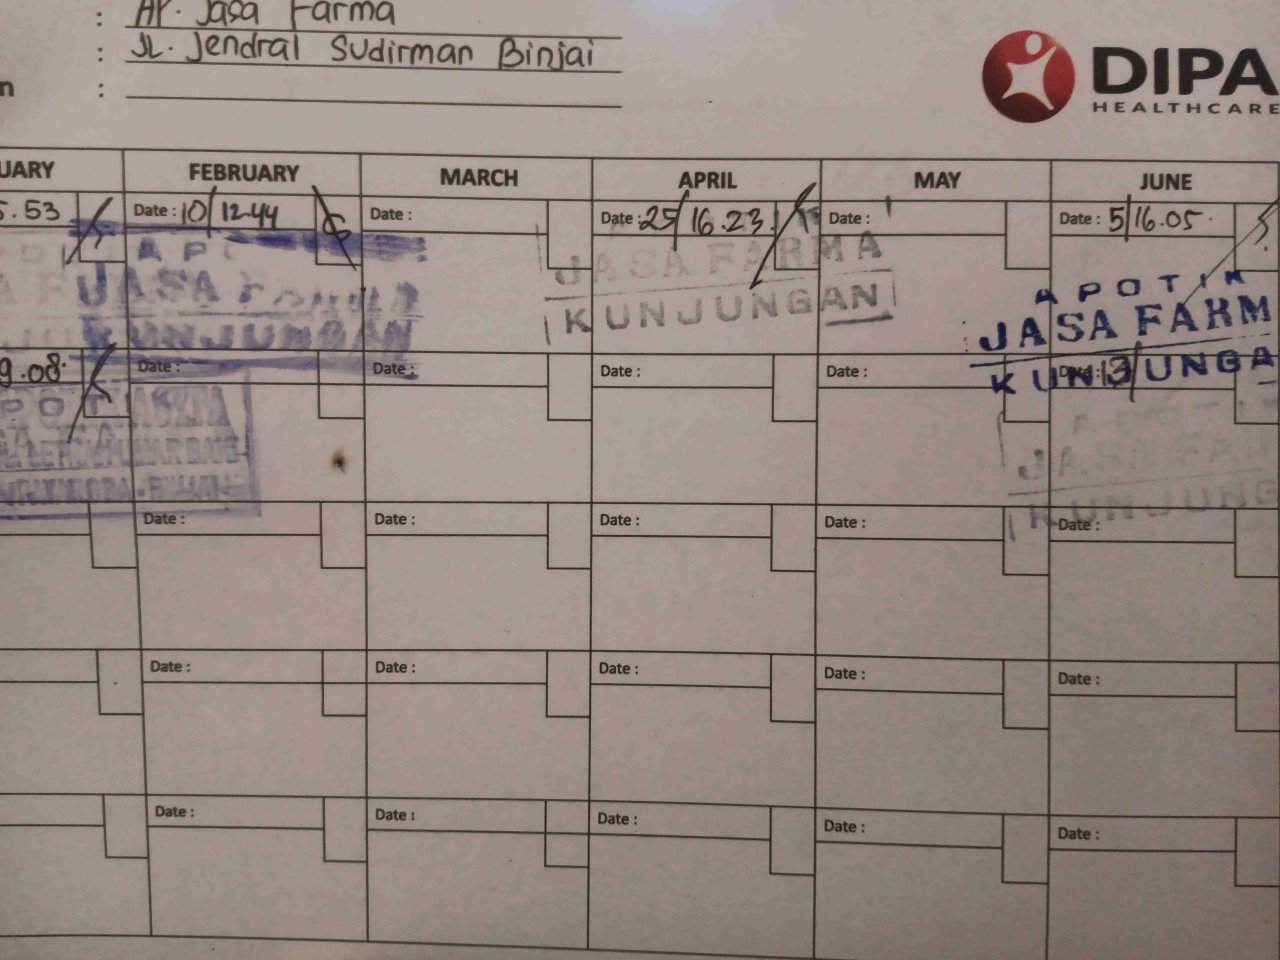 : Ap. Jasa Farma
: JL. Jendral Sudirman Binjai
n :
DIPA
HEALTHCARE
UARY FEBRUARY MARCH APRIL MAY JUNE
5.53 Date : 10/12.44 Date : Date : 25/16.23 Date : Date : 5/16.05
JASA FARMA
KUNJUNGAN
JASA FARMA
KUNJUNGAN
APOTIK
JASA FARM
KUNJUNGA
9.08 Date : Date : Date : Date : Date : 13/
JASA FAR
KUNJUNG
Date : Date : Date : Date : Date :
Date : Date : Date : Date : Date :
Date : Date : Date : Date : Date :